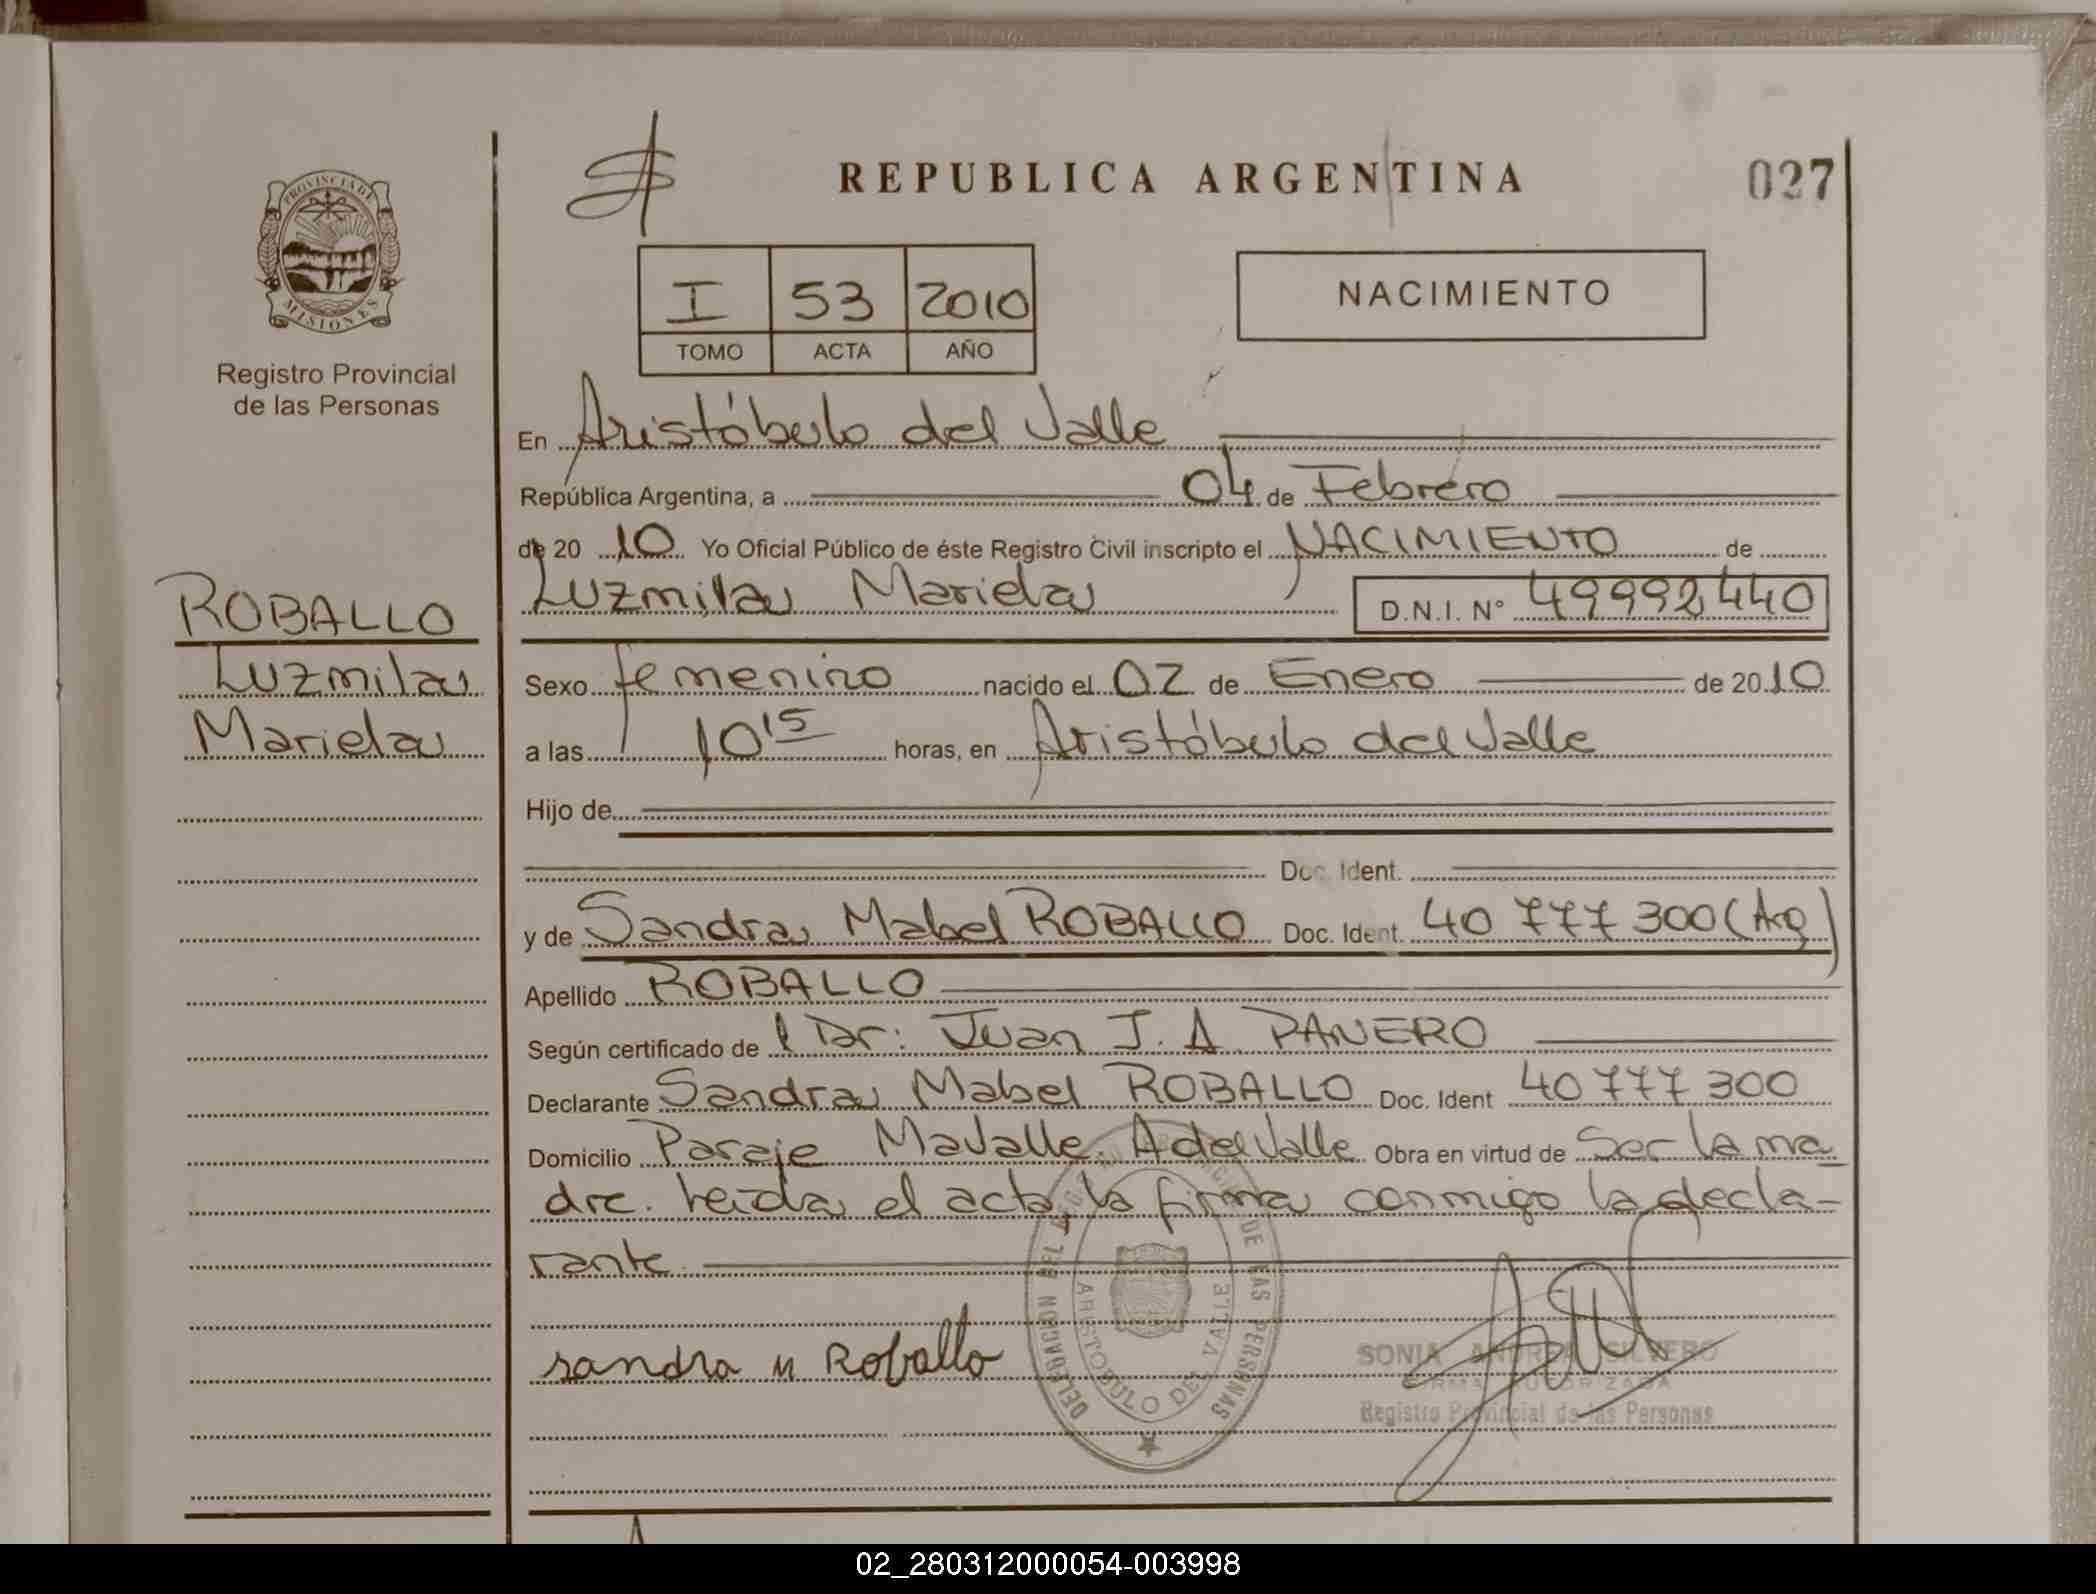 REPUBLICA ARGENTINA
027
PROVINCIA DE
MISIONES
Registro Provincial
de las Personas
I 53 2010
TOMO ACTA AÑO
NACIMIENTO
En Aristóbulo del Valle
República Argentina, a 04 de Febrero
de 20 10 Yo Oficial Público de éste Registro Civil inscripto el NACIMIENTO de
Luzmila Mariela D.N.I. N° 49992440
ROBALLO
Luzmila
Mariela
Sexo femenino nacido el 02 de Enero de 2010
a las 10 15 horas, en Aristóbulo del Valle
Hijo de
Doc. Ident.
y de Sandra Mabel ROBALLO Doc. Ident. 40 777 300 (Arg)
Apellido ROBALLO
Según certificado de l Dr: Juan J. A. PANERO
Declarante Sandra Mabel ROBALLO Doc. Ident 40 777 300
Domicilio Paraje Mavalle. A del Valle Obra en virtud de Ser la ma
dre. Leída el acta, la firma conmigo la decla-
rante
sandra M Roballo
DELEGACION DEL DE LAS PERSONAS
ARISTOBULO DEL VALLE
SONIA ANDREA SILVERO
FIRMA AUTORIZADA
Registro Provincial de las Personas
02_280312000054-003998